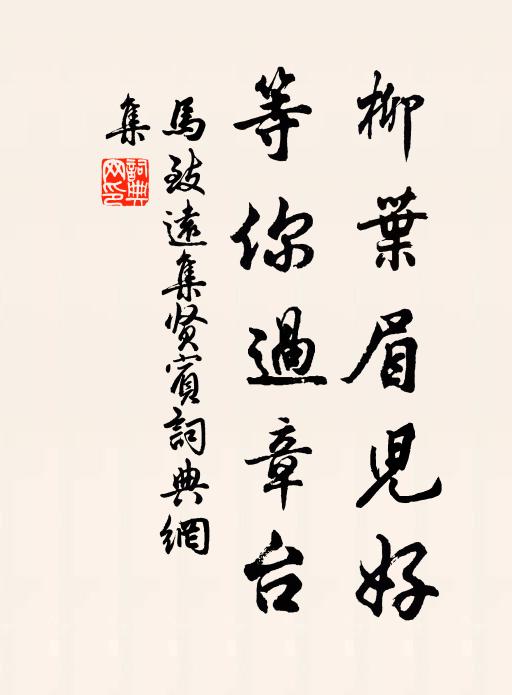 柳葉眉兒好
等你過章台
馬致遠集賢賓詞典網
集
詞典網印